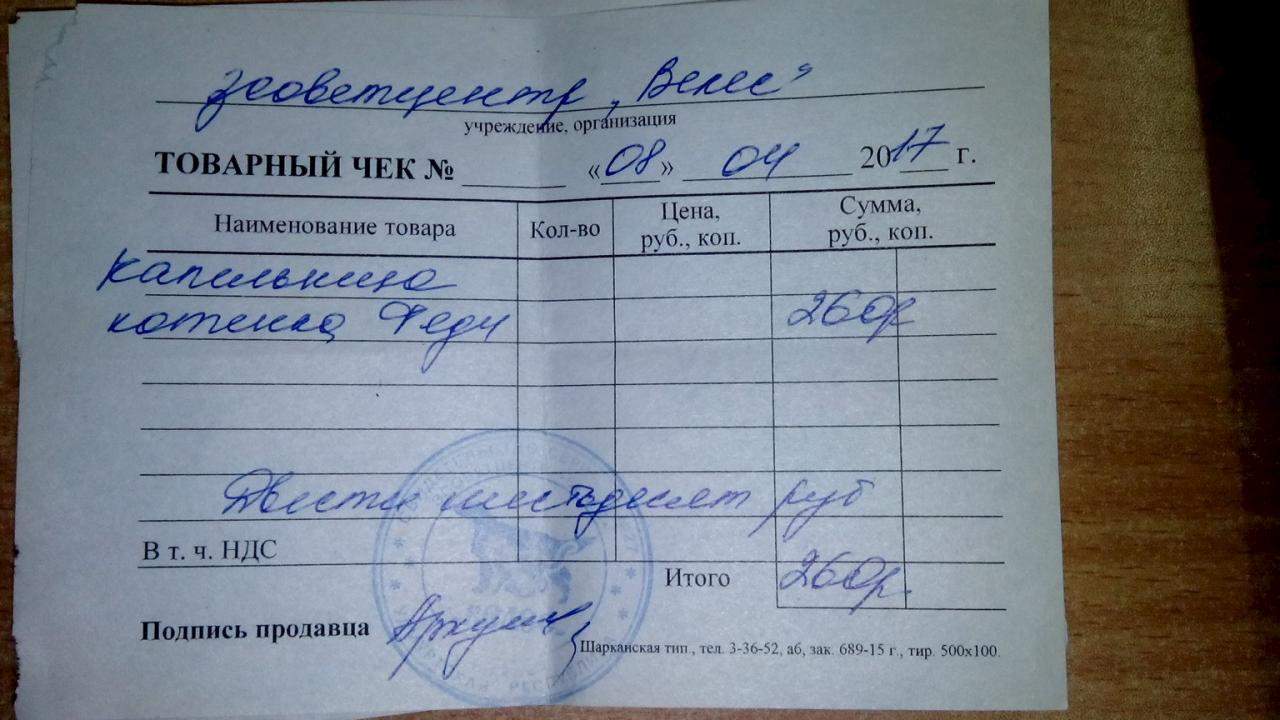 зооветцентр „Велес"
учреждение, организация
ТОВАРНЫЙ ЧЕК № ______ «08» 04 2017 г.
Наименование товара Кол-во Цена, руб., коп. Сумма, руб., коп.
капельница
котенка Феди 260р
Двести шестьдесят руб
В т. ч. НДС
Итого 260р.
Подпись продавца
Шарканская тип., тел. 3-36-52, аб, зак. 689-15 г., тир. 500х100.